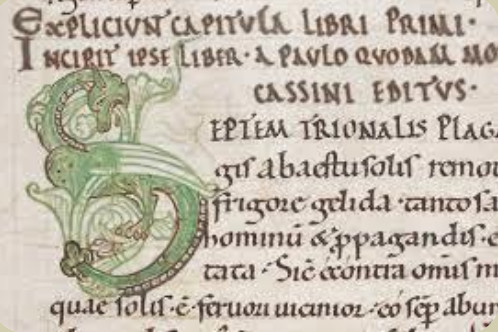 EXPLICIUNT CAPITULA LIBRI PRIMI·
INCIPIT IPSE LIBER· A PAULO QUODAM MO
CASSINI EDITUS·
SEPTEMTRIONALIS PLAGA
gis ab aestu solis remot
frigore gelida· tanto sa
hominū & ꝓpagandis· e
tata· Sic̄ econtra om̄is m
quae solis· ē· feruori uicinior· eo sēp abun